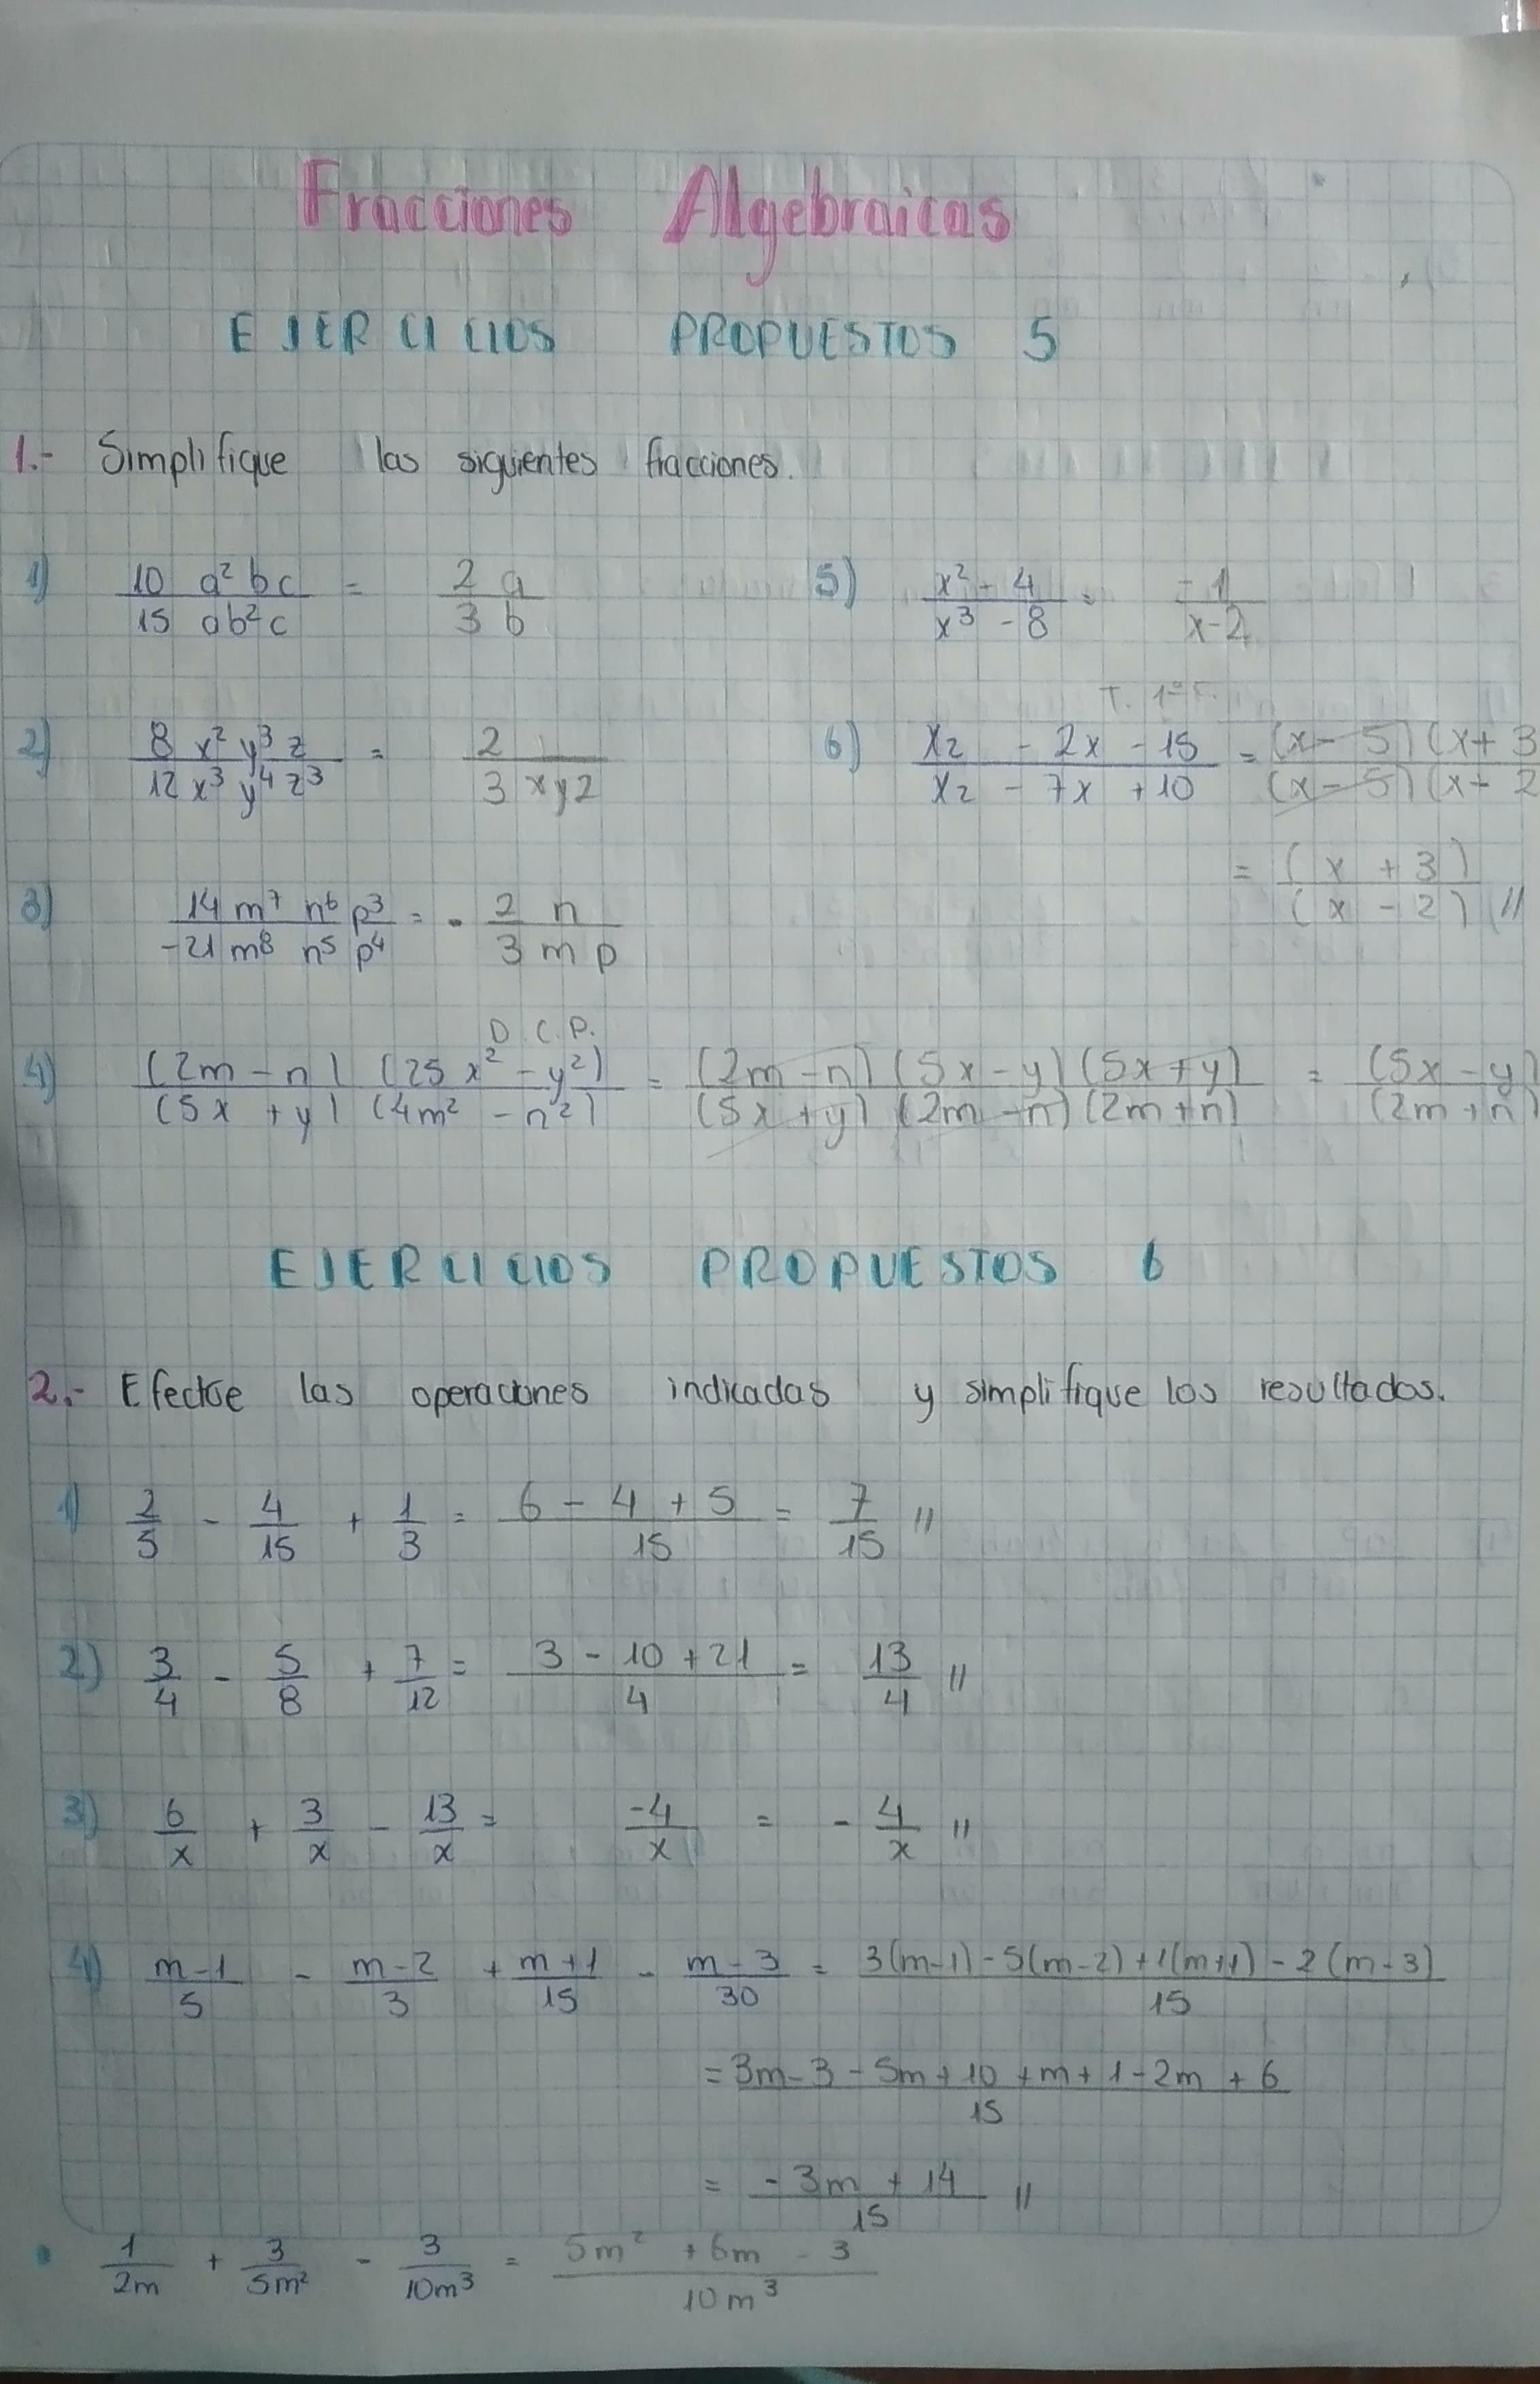 Fracciones Algebraicas
EJERCICIOS PROPUESTOS 5
1.- Simplifique las siguientes fracciones.
1) 10 a² bc / 15 ab²c = 2 a / 3 b
5) x² - 4 / x³ - 8 = - 1 / x-2
2) 8 x² y³ z / 12 x³ y⁴ z³ = 2 / 3 x y 2
T. 1ª F.
6) x2 - 2x - 15 / x2 - 7x + 10 = (x - 5) (x + 3 / (x - 5) (x - 2
= ( x + 3 ) / ( x - 2 ) //
3) 14 m⁷ n⁶ p³ / -21 m⁸ n⁵ p⁴ = - 2 n / 3 m p
D. C. P.
4) (2m - n) (25 x² - y²) / (5x + y) (4m² - n²) = (2m - n) (5x - y) (5x + y) / (5x + y) (2m - n) (2m + n) = (5x - y) / (2m + n)
EJERCICIOS PROPUESTOS 6
2.- Efectúe las operaciones indicadas y simplifique los resultados.
1) 2/5 - 4/15 + 1/3 = 6 - 4 + 5 / 15 = 7/15 //
2) 3/4 - 5/8 + 7/12 = 3 - 10 + 21 / 4 = 13/4 //
3) 6/x + 3/x - 13/x = -4/x = - 4/x //
4) m-1 / 5 - m-2 / 3 + m+1 / 15 - m-3 / 30 = 3(m-1) - 5(m-2) + 1(m+1) - 2(m-3) / 15
= 3m - 3 - 5m + 10 + m + 1 - 2m + 6 / 15
= - 3m + 14 / 15 //
• 1/2m + 3/5m² - 3/10m³ = 5m² + 6m - 3 / 10m³